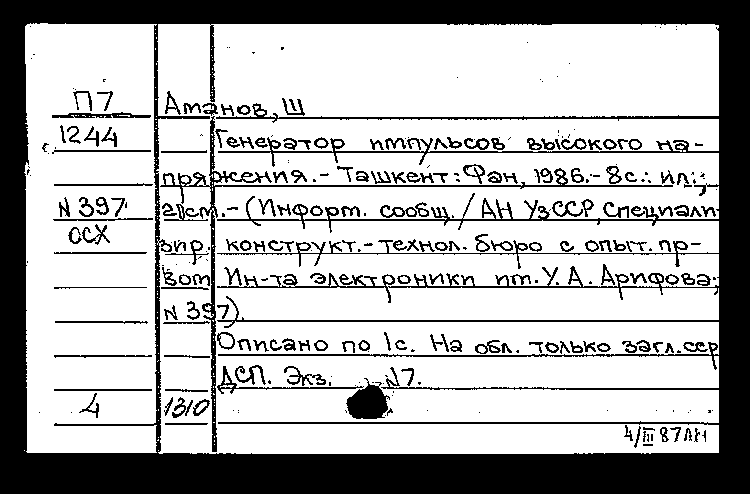 П7 Аманов, Ш
1244 Генератор импульсов высокого на-
пряжения. - Ташкент: Фан, 1986. - 8с.: ил.;
N 397 21см. - (Информ. сообщ. / АН УзССР, специали-
ОСХ зир. конструкт.-технол. бюро с опыт. пр-
вом Ин-та электроники им. У. А. Арифова;
N 397).
Описано по 1с. На обл. только загл. сер
ДСП. Экз. N7.
4 1310
4/III 87 ЛН